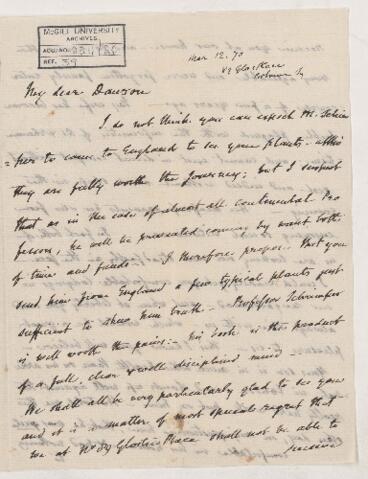 McGILL UNIVERSITY
ARCHIVES
ACC. NO.
REF. 39
Mar 12. 70
My dear Dawson
I do not think you can expect Mr. Schim
=per to come to England to see your plants. – altho
they are fully worth the journey; but I suspect
that as in the case of almost all continental Pro
fessors, he will be prevented coming by want both
of time and funds – I therefore propose that you
send him from England a few typical plants just
sufficient to shew him truth – Professor Schimper
is well worth the pains: – his book is the product
of a full, clear & well disciplined mind –
We shall all be very particularly glad to see you
and it is a matter of most especial regret that
we at No 89 Gloster Place shall not be able to
receive